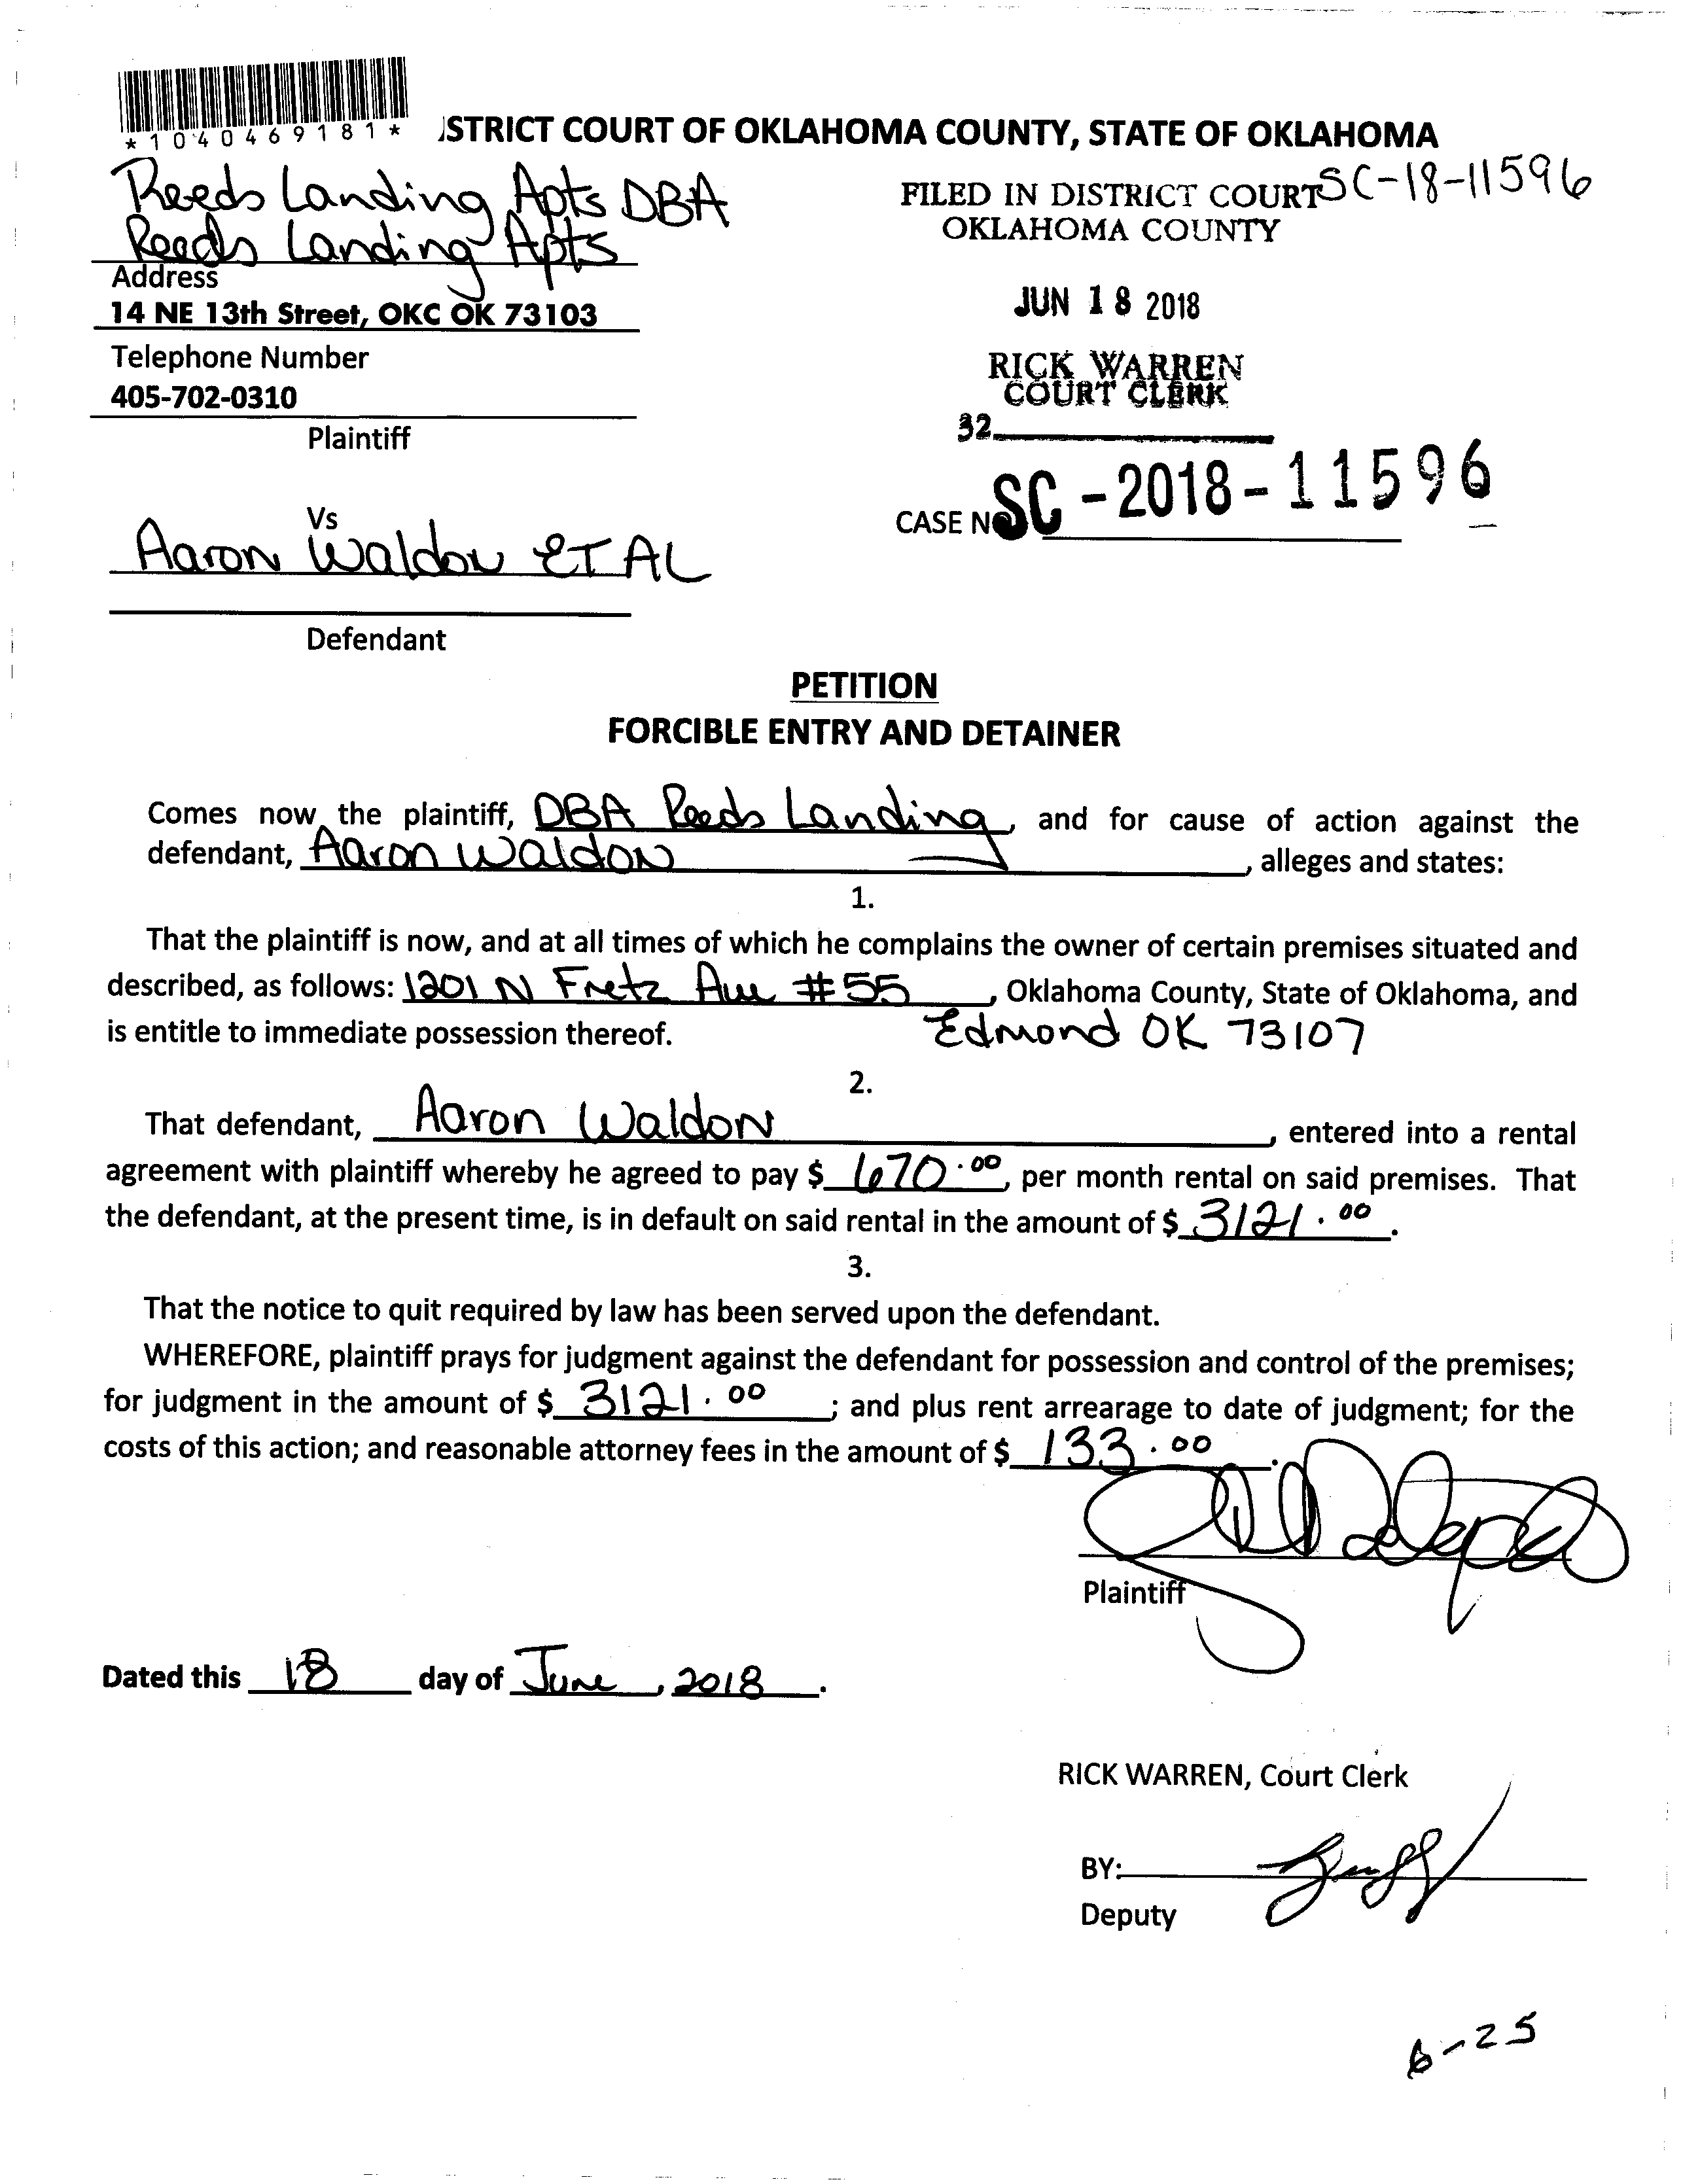 *1040469181*
STRICT COURT OF OKLAHOMA COUNTY, STATE OF OKLAHOMA
Reeds Landing Apts DBA
Reeds Landing Apts
Address
14 NE 13th Street, OKC OK 73103
Telephone Number
405-702-0310
Plaintiff
FILED IN DISTRICT COURT SC-18-11596
OKLAHOMA COUNTY
JUN 18 2018
RICK WARREN
COURT CLERK
32
CASE NO SC-2018-11596
Vs
Aaron Waldon ET AL
Defendant
PETITION
FORCIBLE ENTRY AND DETAINER
Comes now the plaintiff, DBA Reeds Landing, and for cause of action against the
defendant, Aaron Waldon, alleges and states:
1.
That the plaintiff is now, and at all times of which he complains the owner of certain premises situated and
described, as follows: 1201 N Fretz Ave #55, Oklahoma County, State of Oklahoma, and
is entitle to immediate possession thereof. Edmond OK 73107
2.
That defendant, Aaron Waldon, entered into a rental
agreement with plaintiff whereby he agreed to pay $ 670.00, per month rental on said premises. That
the defendant, at the present time, is in default on said rental in the amount of $ 3121.00.
3.
That the notice to quit required by law has been served upon the defendant.
WHEREFORE, plaintiff prays for judgment against the defendant for possession and control of the premises;
for judgment in the amount of $ 3121.00; and plus rent arrearage to date of judgment; for the
costs of this action; and reasonable attorney fees in the amount of $ 133.00.
Plaintiff
Dated this 18 day of June, 2018.
RICK WARREN, Court Clerk
BY:
Deputy
6-25